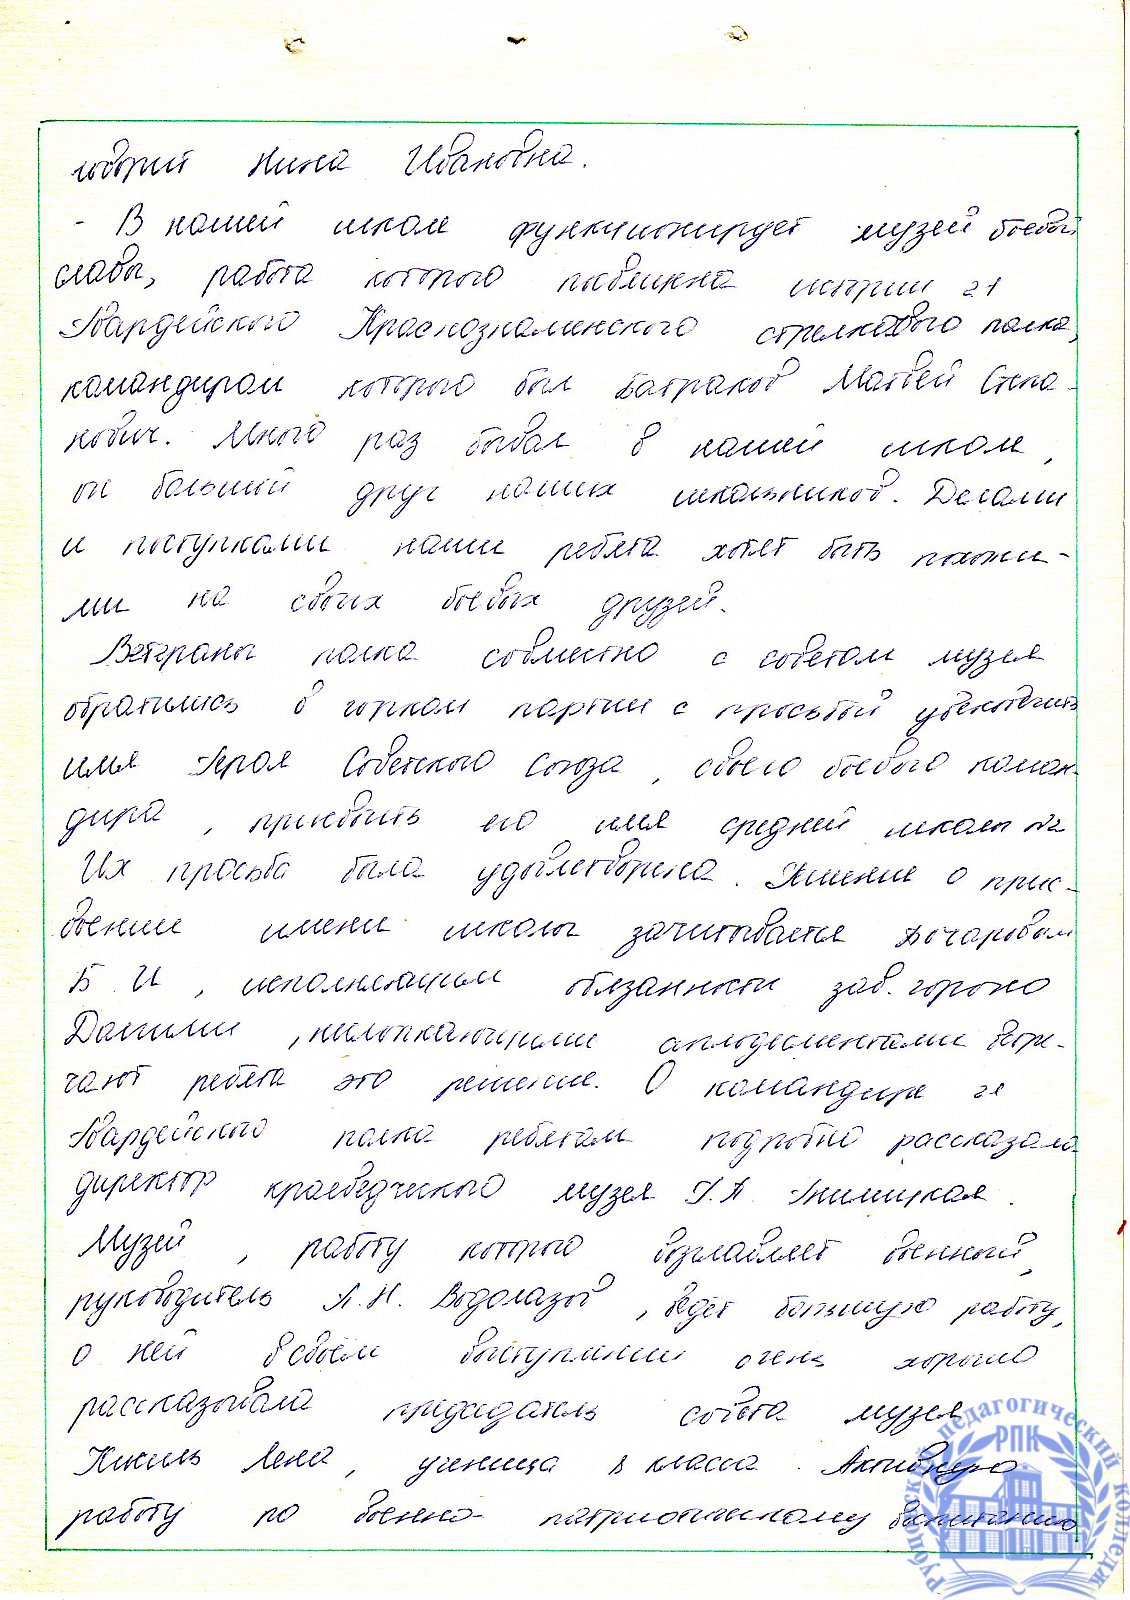 говорит Нина Ивановна.
- В нашей школе функционирует музей боевой
славы, работа которого посвящена истории 21
Гвардейского Краснознаменского стрелкового полка,
командиром которого был Батраков Матвей Степа-
нович. Много раз бывал в нашей школе,
он большой друг наших школьников. Делами
и поступками наши ребята хотят быть похожи-
ми на своих боевых друзей.
Ветераны полка совместно с советом музея
обратились в горком партии с просьбой увековечить
имя Героя Советского Союза, своего боевого коман-
дира, присвоить его имя средней школы №2
Их просьба была удовлетворена. Решение о прис-
воении имени школы зачитывается Бочаровым
Б. И, исполняющим обязанности зав. гороно
Долгими, несмолкающими аплодисментами встре-
чают ребята это решение. О командире 21
Гвардейского полка ребятам подробно рассказала
директор краеведческого музея
Музей, работу которого возглавляет военный,
руководитель А.Н. Водолазов, ведет большую работу,
о ней в своем выступлении очень хорошо
рассказывала председатель совета музея
Лена, ученица 8 класса. Активную
работу по военно- патриотическому воспитанию
Рубцовский педагогический колледж
РПК